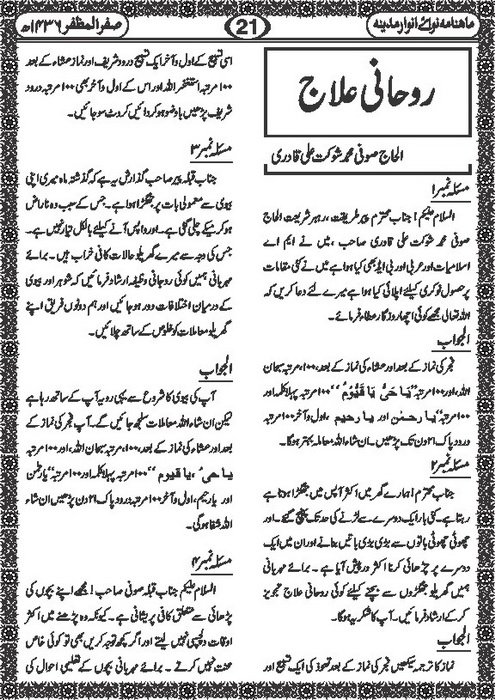 ماہنامہ نوائے انوار مدینہ
21
صفر المظفر ۱۴۳۶ھ
روحانی علاج
الحاج صوفی محمد شوکت علی قادری
مسئلہ نمبر ۱
السلام علیکم! جناب محترم پیر طریقت، رہبر شریعت الحاج
صوفی محمد شوکت علی قادری صاحب، میں نے ایم اے
اسلامیات اور عربی اور بی ایڈ بھی کیا ہوا ہے میں نے کئی مقامات
پر حصول نوکری کیلئے اپلائی کیا ہوا ہے میرے لئے دعا کریں کہ
اللہ تعالیٰ مجھے کوئی اچھا روزگار عطاء فرمائے۔
الجواب
فجر کی نماز کے بعد اور عشاء کی نماز کے بعد، ۱۰۰ مرتبہ سبحان
اللہ، اور ۱۰۰ مرتبہ ”یا حَیُّ یَا قَیُّومُ“ ۱۰۰ مرتبہ پہلا کلمہ اور
۱۰۰ مرتبہ ”یا رحمٰن اور یا رحیم، اول و آخر ۱۰۰ مرتبہ
درود پاک ۲۱ دن تک پڑھیں۔ ان شاء اللہ معاملہ بہتر ہوگا۔
مسئلہ نمبر ۲
جناب محترم! ہمارے گھر میں اکثر آپس میں جھگڑا ہوتا ہے
رہتا ہے۔ کئی بار ایک دوسرے سے لڑنے کی حد تک پہنچ گئے۔ اور
چھوٹی چھوٹی باتوں سے بڑی بڑی باتیں بنانے اور ان میں ایک
دوسرے پر چڑھائی کرنا اکثر درپیش آیا ہے۔ برائے مہربانی
ہمیں گھریلو جھگڑوں سے بچنے کیلئے کوئی روحانی علاج تجویز
کر کے ارشاد فرمائیں۔ آپ کا شکریہ ہوگا۔
الجواب
نماز کا ترجمہ سیکھیں فجر کی نماز کے بعد تعوذ کی ایک تسبیح اور
اسی تسبیح کے اول و آخر ایک تسبیح درود شریف اور نماز عشاء کے بعد
۱۰۰ مرتبہ استغفر اللہ اور اس کے اول و آخر بھی ۱۰۰ مرتبہ درود
شریف پڑھیں باوضو ہو کر دائیں کروٹ سو جائیں۔
مسئلہ نمبر ۳
جناب قبلہ پیر صاحب گذارش یہ ہے کہ گذشتہ ماہ میری اپنی
بیوی سے معمولی بات پر جھگڑا ہوا ہے۔ جس کے سبب وہ ناراض
ہو کر میکے چلی گئی ہے۔ اور واپس آنے کیلئے بالکل تیار نہیں ہے۔
جس کی وجہ سے میرے گھریلو حالات کافی خراب ہیں۔ برائے
مہربانی ہمیں کوئی روحانی وظیفہ ارشاد فرمائیں کہ شوہر اور بیوی
کے درمیان اختلافات دور ہو جائیں اور ہم دونوں فریق اپنے
گھریلو معاملات کو خلوص کے ساتھ چلائیں۔
الجواب
آپ کی بیوی کا شروع سے یہی رویہ آپ کے ساتھ رہا ہے
لیکن ان شاء اللہ معاملات سلجھ جائیں گے۔ آپ فجر کی نماز کے
بعد اور عشاء کی نماز کے بعد، ۱۰۰ مرتبہ سبحان اللہ، اور ۱۰۰ مرتبہ
یا حیُ، یا قیوم“ ۱۰۰ مرتبہ پہلا کلمہ اور ۱۰۰ مرتبہ ”یا رحمٰن
اور یا رحیم، اول و آخر ۱۰۰ مرتبہ درود پاک ۲۱ دن پڑھیں ان شاء
اللہ شفا ہوگی۔
مسئلہ نمبر ۴
السلام علیکم جناب قبلہ صوفی صاحب! مجھے اپنے بچوں کی
پڑھائی سے متعلق کافی پریشانی ہے۔ کیونکہ وہ پڑھنے میں اکثر
اوقات دلچسپی نہیں لیتے اور اگر کچھ توجہ کریں بھی تو کوئی خاص
محنت نہیں کرتے۔ برائے مہربانی بچوں کے تعلیمی احوال کی